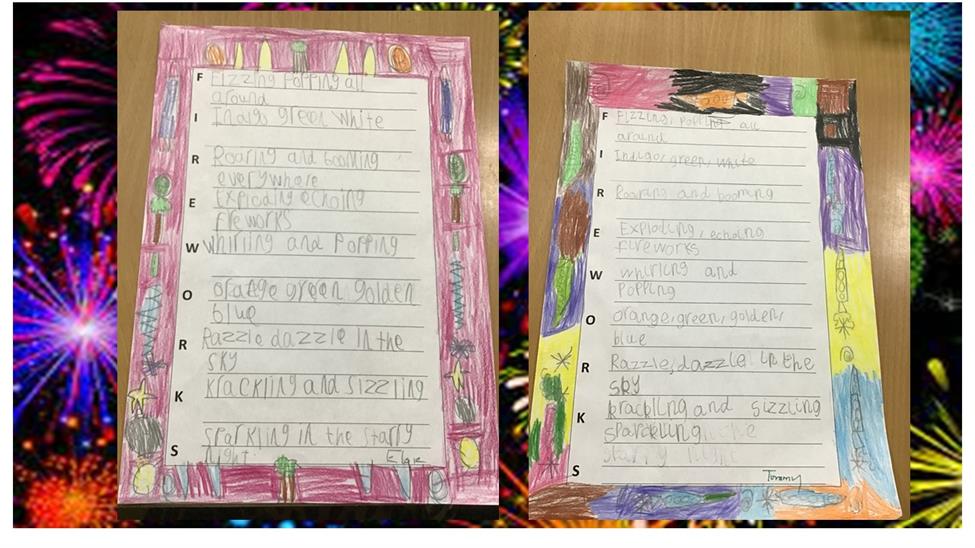 F Fizzing Popping all
around
I Indigo green white
R Roaring and booming
everywhere
E Explodig echoing
fireworks
W Whirling and Popping
O orange green golden
blue
R Razzle dazzle in the
sky
K Krackling and sizzling
S sparkling in the starry
night.
F Fizzing, popping all
around
I Indigo, green, white
R Roaring and booming
E Exploding, echoing
fireworks
W whirling and
popping
O orange, green, golden,
blue
R Razzle, dazzle in the
sky
K krackling and sizzling
S sparkling in the
starry night
Tommy